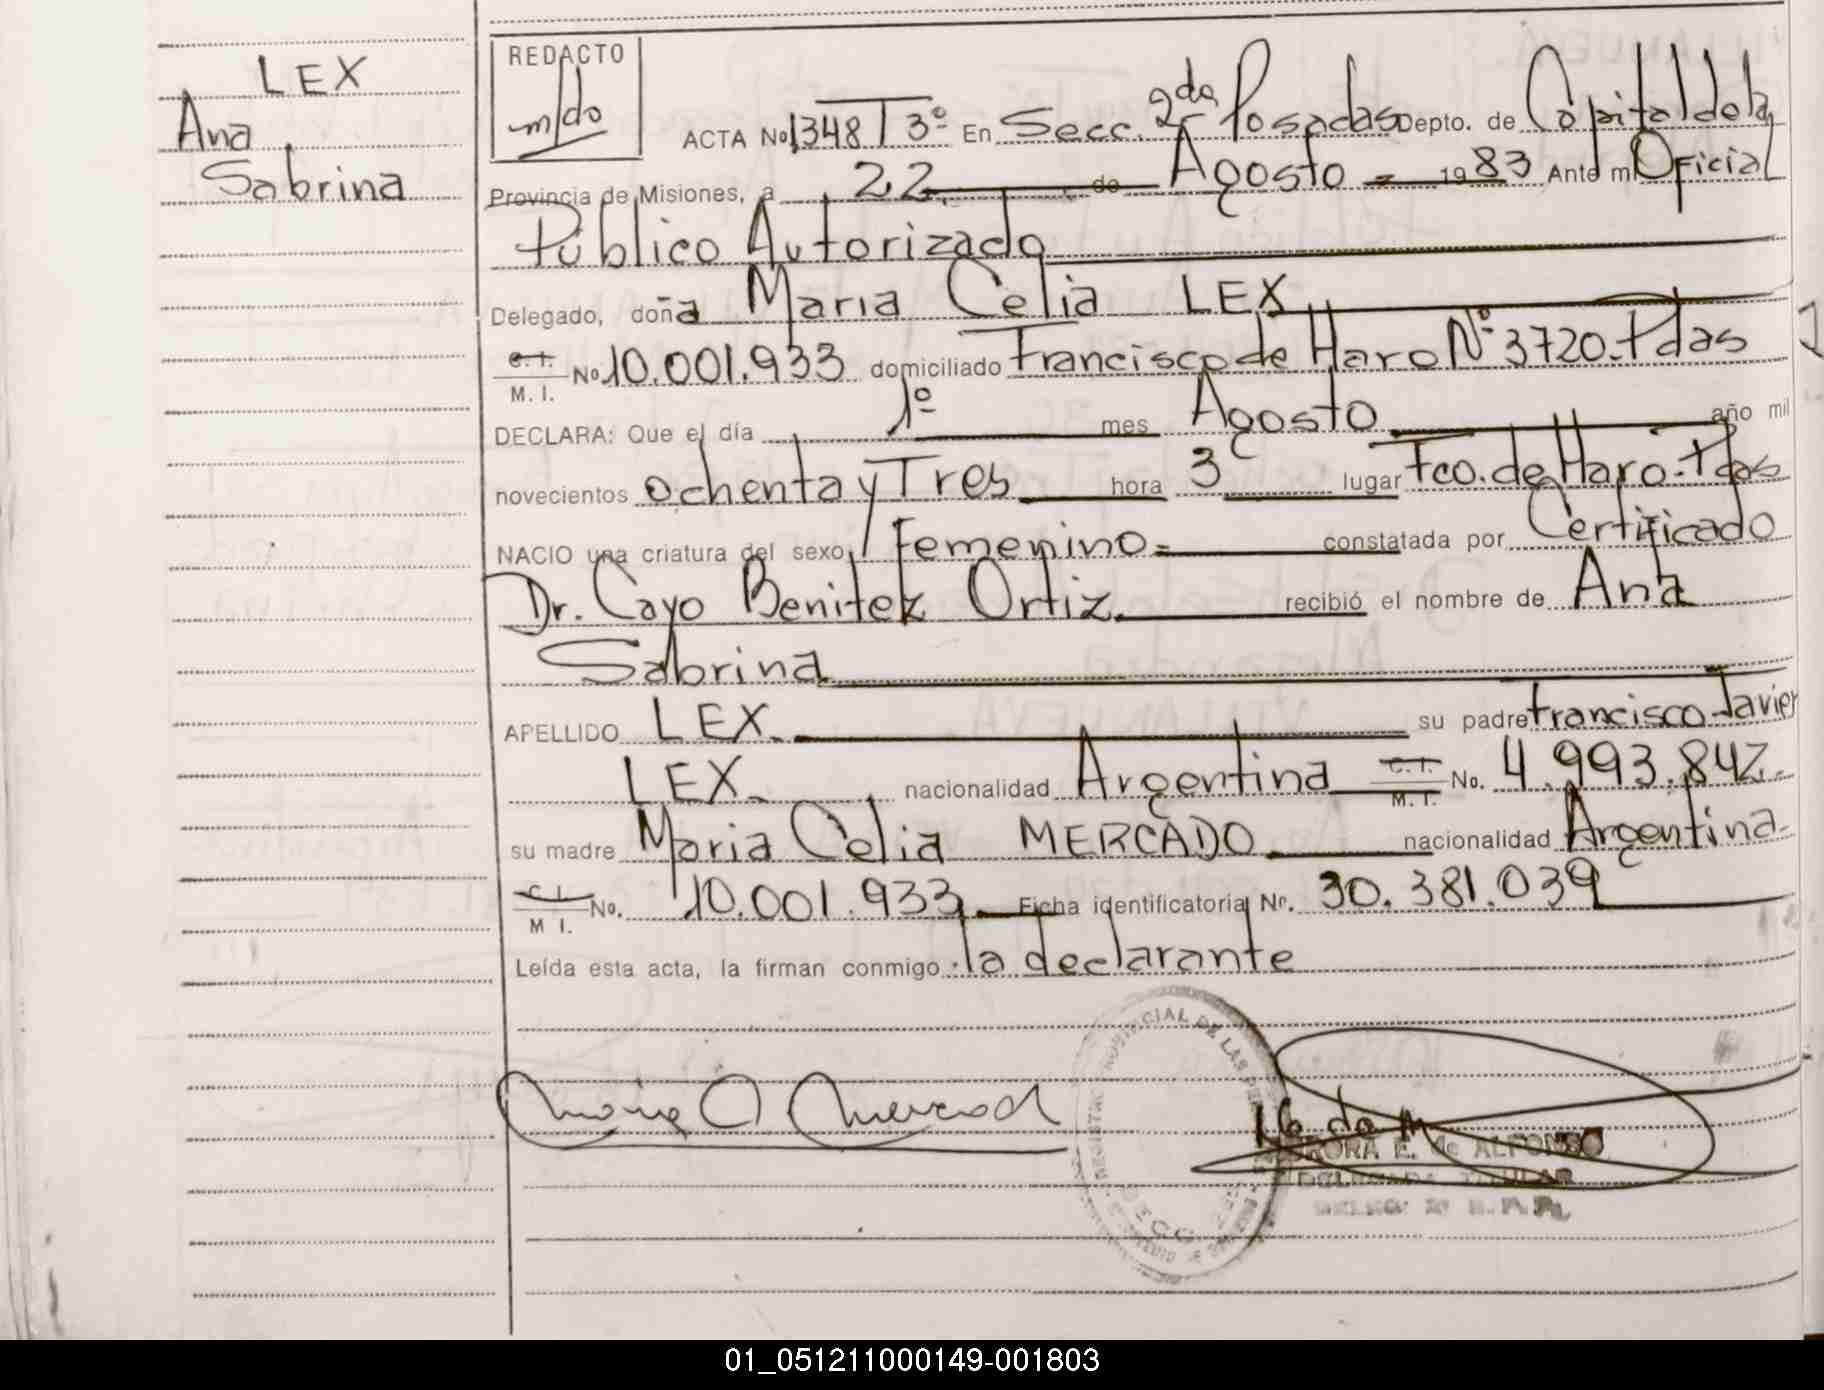 LEX
Ana
Sabrina
REDACTO
m/do
ACTA No 1348 T 3º En Secc. 2da Posadas Depto. de Capital de la
Provincia de Misiones, a 22 de Agosto 1983 Ante mi Oficial
Público Autorizado
Delegado, doña Maria Celia LEX
C. I. M. I. No 10.001.933 domiciliado Francisco de Haro Nº 3720. Pdas
DECLARA: Que el día 1º mes Agosto año mil
novecientos ochenta y Tres hora 3 lugar Fco. de Haro. Pdas
NACIO una criatura del sexo Femenino constatada por Certificado
Dr. Cayo Benitez Ortiz recibió el nombre de Ana
Sabrina
APELLIDO LEX su padre Francisco Javier
LEX nacionalidad Argentina C. I. M. I. No. 4.993.842
su madre Maria Celia MERCADO nacionalidad Argentina
C. I. M I. No. 10.001.933 Ficha identificatoria Nº. 30.381.039
Leída esta acta, la firman conmigo la declarante
PROVINCIAL DE LAS
E. de ALFONSO
DELEGADA TITULAR
01_051211000149-001803